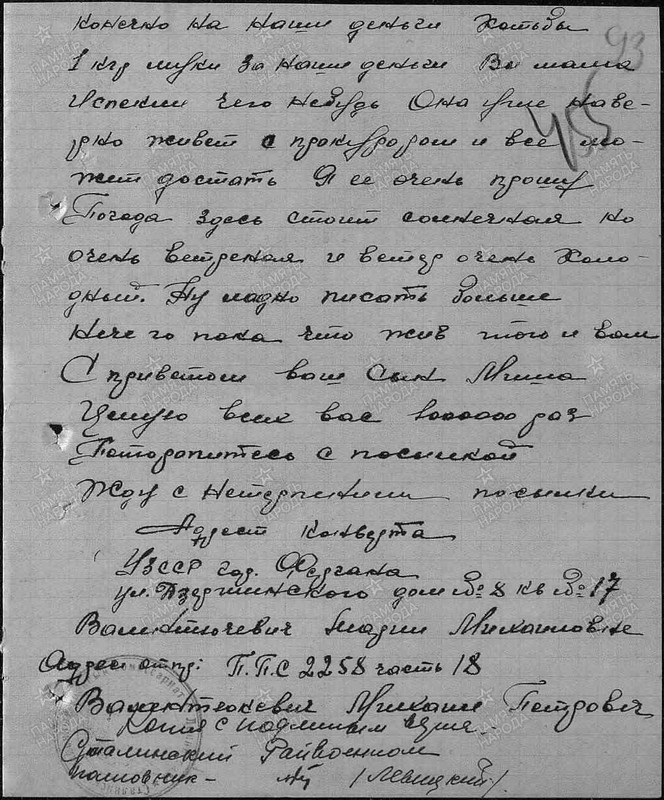 93
конечно на наши деньги Хотьбы
455
1 кгр муки за наши деньги Вы мама
Испекли чего небудь Она уже наве-
рно живет с прокурором и все мо-
жет достать Я ее очень прошу
Погода здесь стоит солнечная но
очень ветреная и ветер очень холо-
дный. Ну ладно писать больше
Нечего пока что жив того и вам
С приветом ваш Сын Миша
Целую всех вас 1000000 раз
Поторопитесь с посылкой
Жду с Нетерпением посылки
Адрест конверта
УзССР гор. Фергана
ул. Дзержинского дом № 8 кв № 17
Марии Михайловне
Адрес отпр: П.П.С 2258 часть 18
Михаил Петрович
Копия с подлинным верна
Сталинский Райвоенком
полковник - /Левицкий/
ПАМЯТЬ НАРОДА